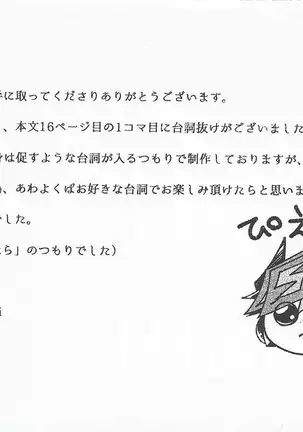 手に取ってくださりありがとうございます。
、本文16ページ目の1コマ目に台詞抜けがございました
身は促すような台詞が入るつもりで制作しておりますが、
、あわよくばお好きな台詞でお楽しみ頂けたらと思いま
でした。
ら」のつもりでした）
ぴえ